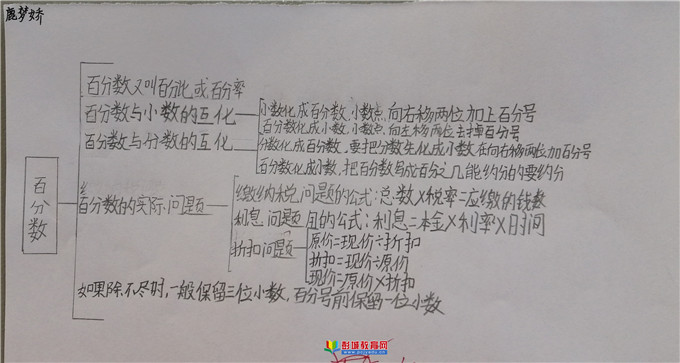 鹿梦娇
百分数又叫百分比或百分率
百分数与小数的互化
小数化成百分数,小数点向右移两位加上百分号
百分数化成小数,小数点向左移两位去掉百分号
百分数与分数的互化
分数化成百分数,要把分数先化成小数在向右移两位加百分号
百分数化成小数,把百分数写成百分之几能约分的要约分
百分数
百分数的实际问题
缴纳税问题的公式:总数×税率=应缴的钱数
利息问题的公式:利息=本金×利率×时间
折扣问题
原价=现价÷折扣
折扣=现价÷原价
现价=原价×折扣
如果除不尽时,一般保留三位小数,百分号前保留一位小数
彭城教育网